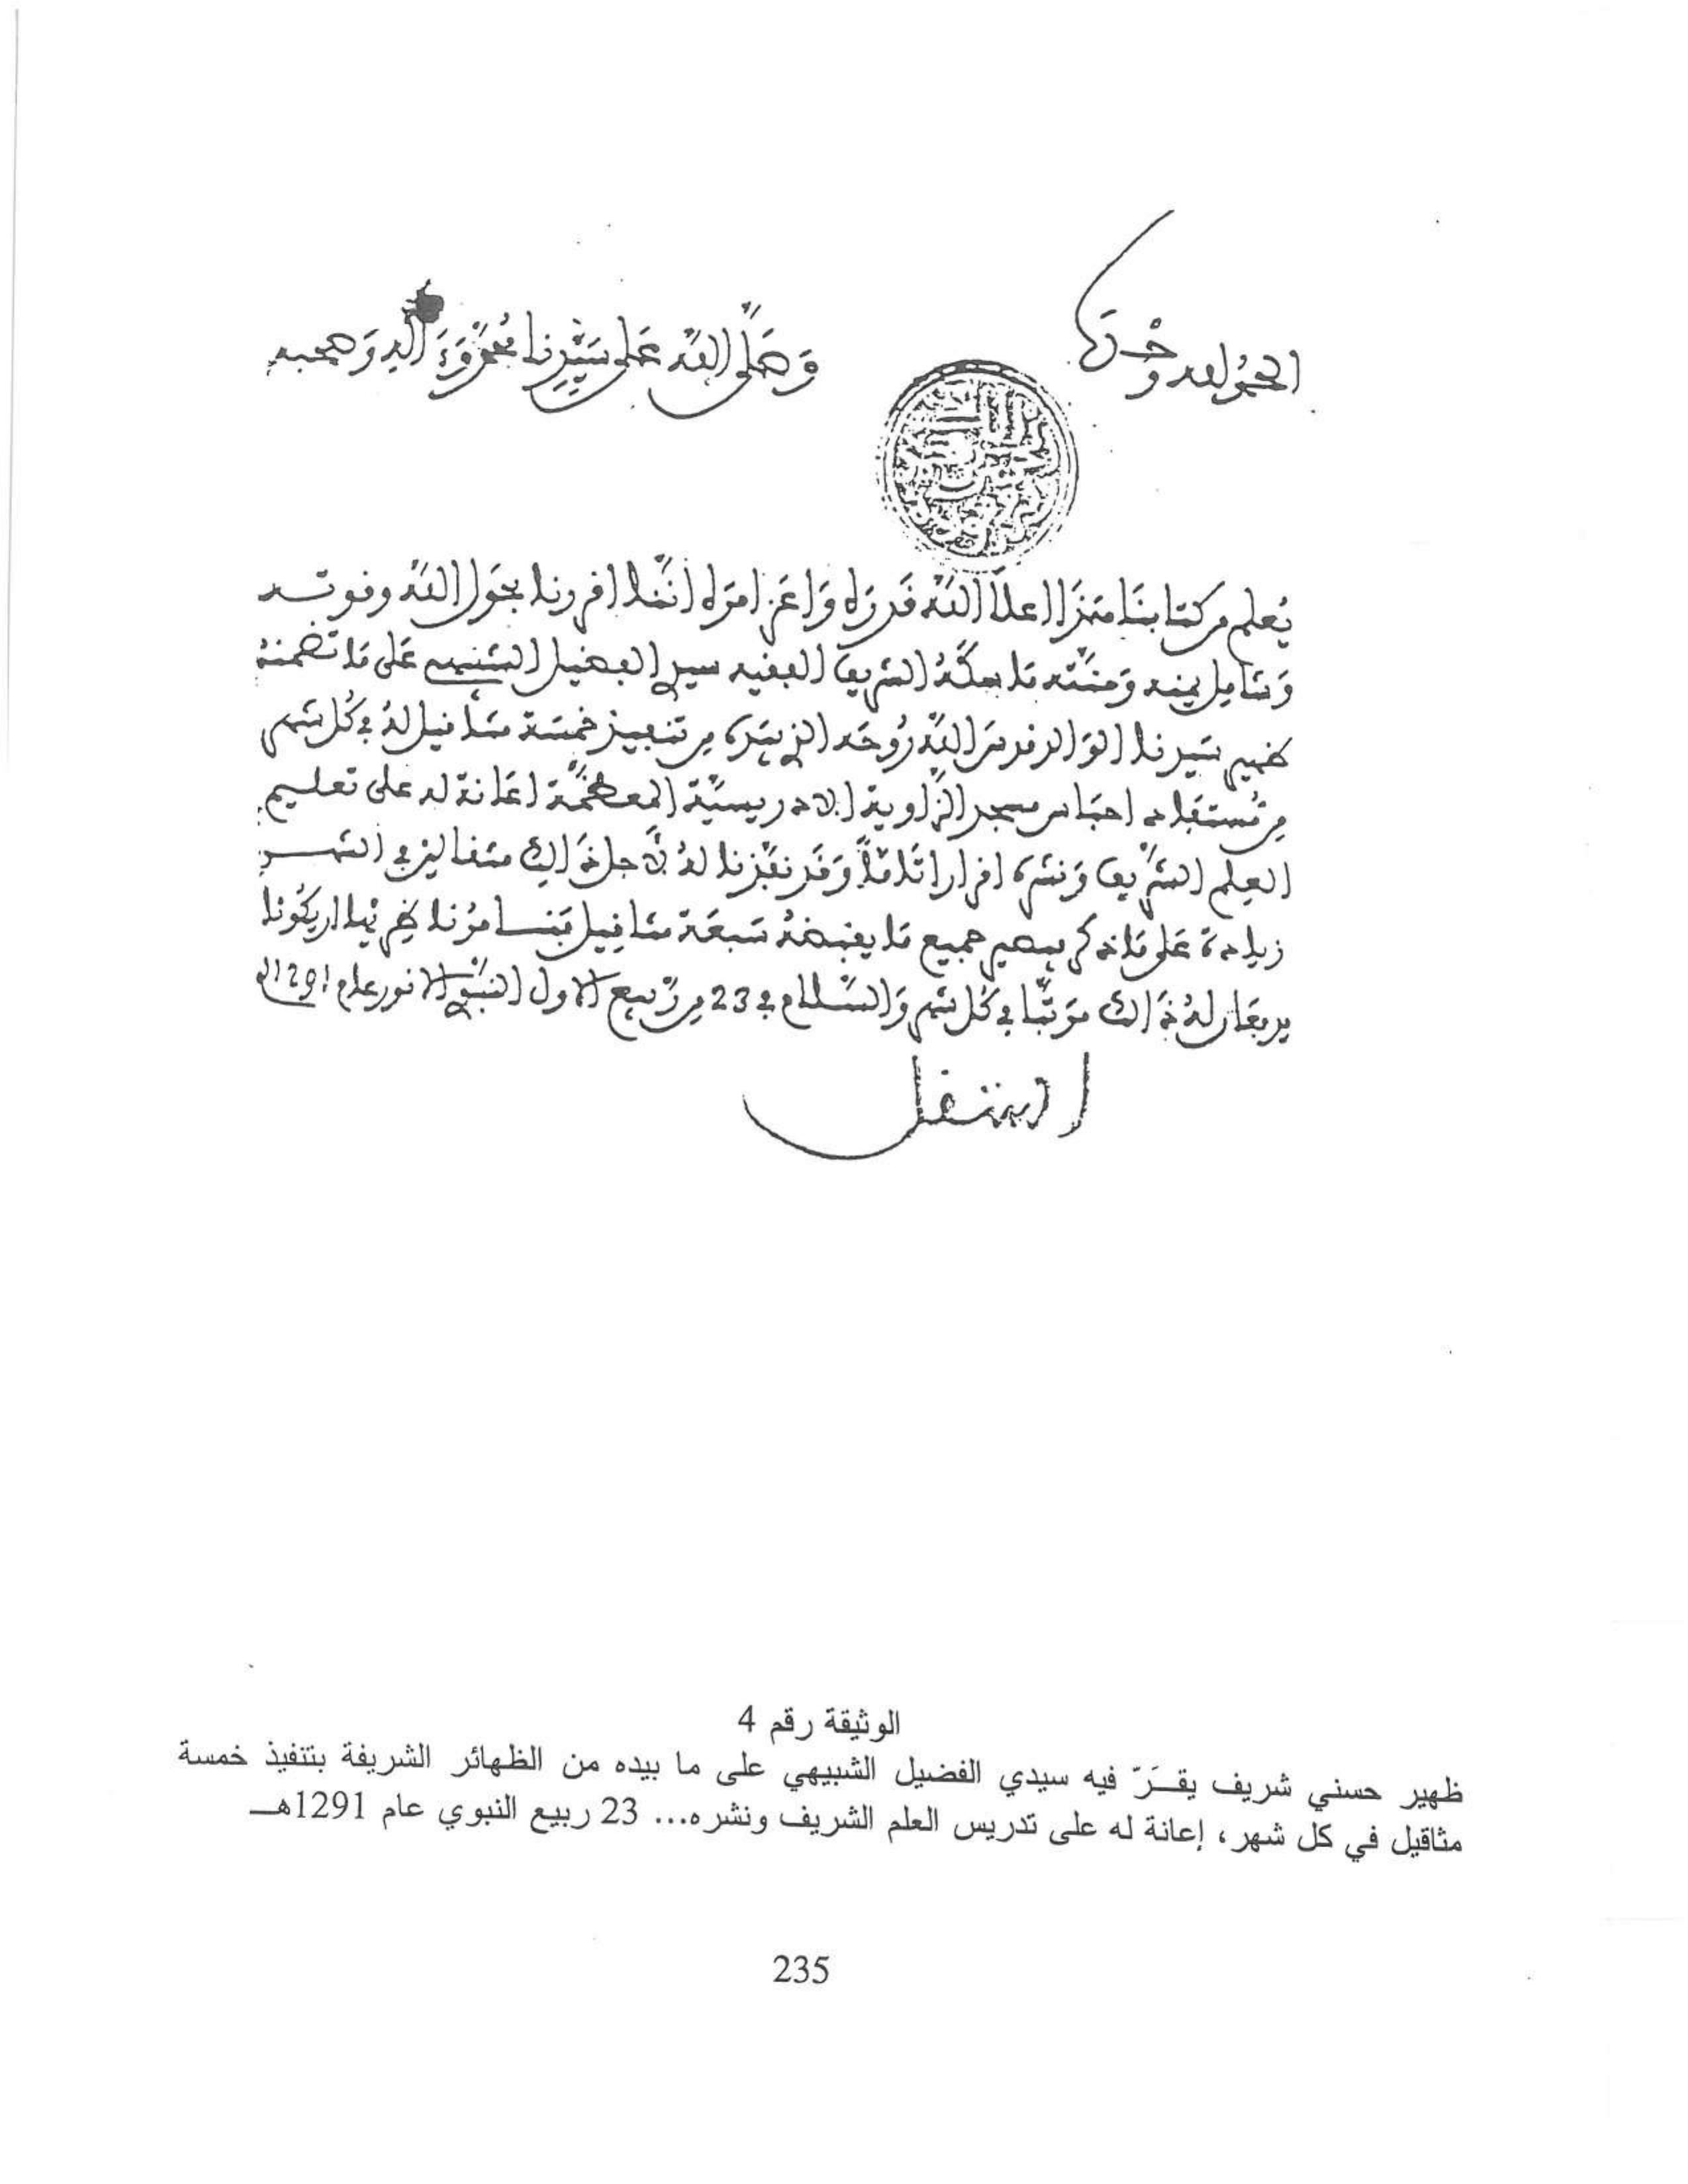 الحمد لله وحده
وَصَلَّى اللَّه عَلى سَيِّدِنا مُحَمَّد وَءَاله وَصحبه
يُعلم من كتابنَا هَذَا اعلا اللَّه قَدرَه وَاعَز امرَه انَّنا اقررنا بحَول اللَّه وقوته
وَشَامِل يمنه وَمنَّته مَا الشريف الفقيه سيدي الفضيل الشبيهي عَلى مَا تضمنهُ
ظهير سَيدنا الوَالد قدس اللَّه رُوحَه الذي بيَده من تنفيذ خمسَة مثَاقيل لهُ في كُل شهر
من مُستفَاد احبَاس مسجد الزَّاوية الادريسيَّة المعظمَّة اعَانة له على تعليم
العِلم الشرَّيف وَنشره اقرارا تَامّاً وَقَد نفَّذنا لهُ لأجل ذَالك مثقالين في الشهر
زيادة عَلى مَا ذكر يصير جميع مَا يقبضهُ سَبعَة مثَاقيل فنامرُنا ان يكُونا
يدفعَان لهُ ذَالك مرَتبّا في كُل شهر وَالسَّلام في 23 من رَبيع الاول النبَّوي الانور عام 1291
الوثيقة رقم 4
ظهير حسني شريف يقـَرّ فيه سيدي الفضيل الشبيهي على ما بيده من الظهائر الشريفة بتنفيذ خمسة
مثاقيل في كل شهر، إعانة له على تدريس العلم الشريف ونشره... 23 ربيع النبوي عام 1291هـ
235